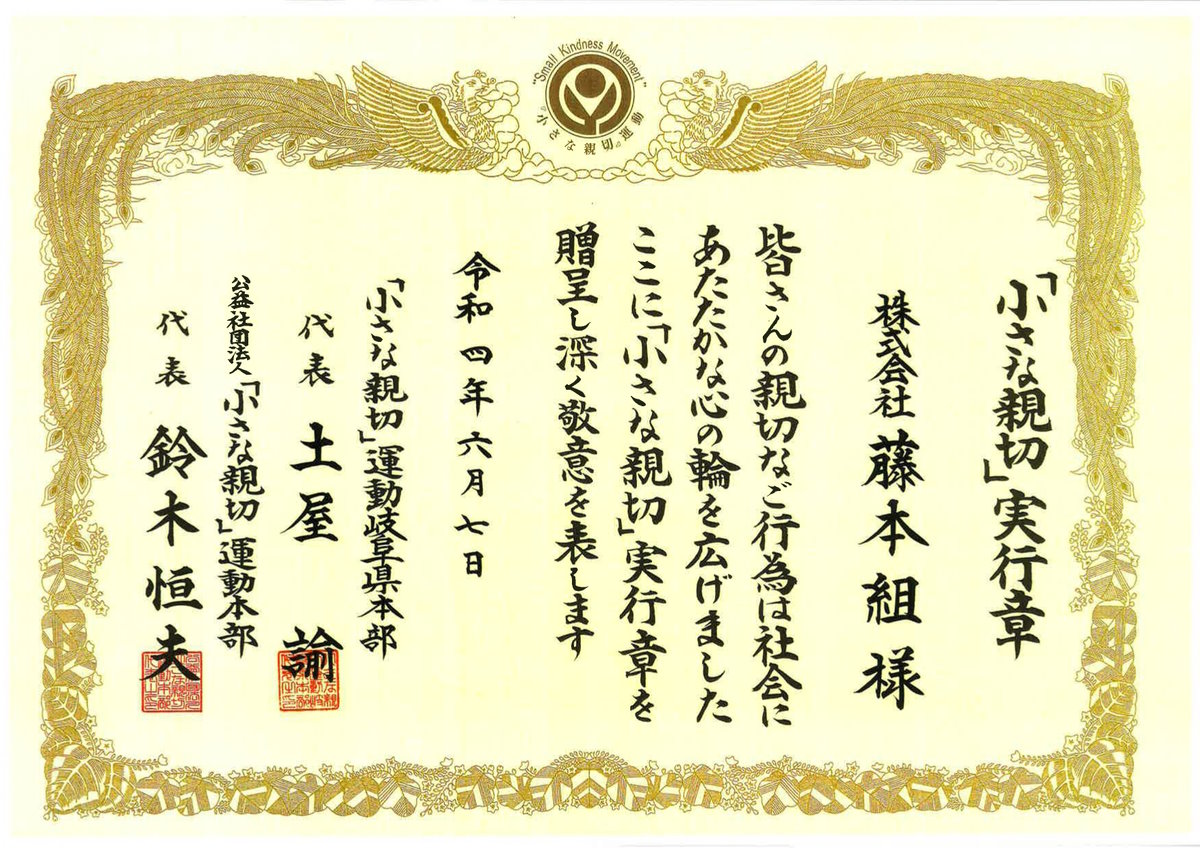 "Small Kindness Movement"
『小さな親切』運動
「小さな親切」実行章
株式会社 藤本組様
皆さんの親切なご行為は社会に
あたたかな心の輪を広げました
ここに「小さな親切」実行章を
贈呈し深く敬意を表します
令和四年六月七日
「小さな親切」運動岐阜県本部
代表 土屋 諭
公益社団法人「小さな親切」運動本部
代表 鈴木恒夫